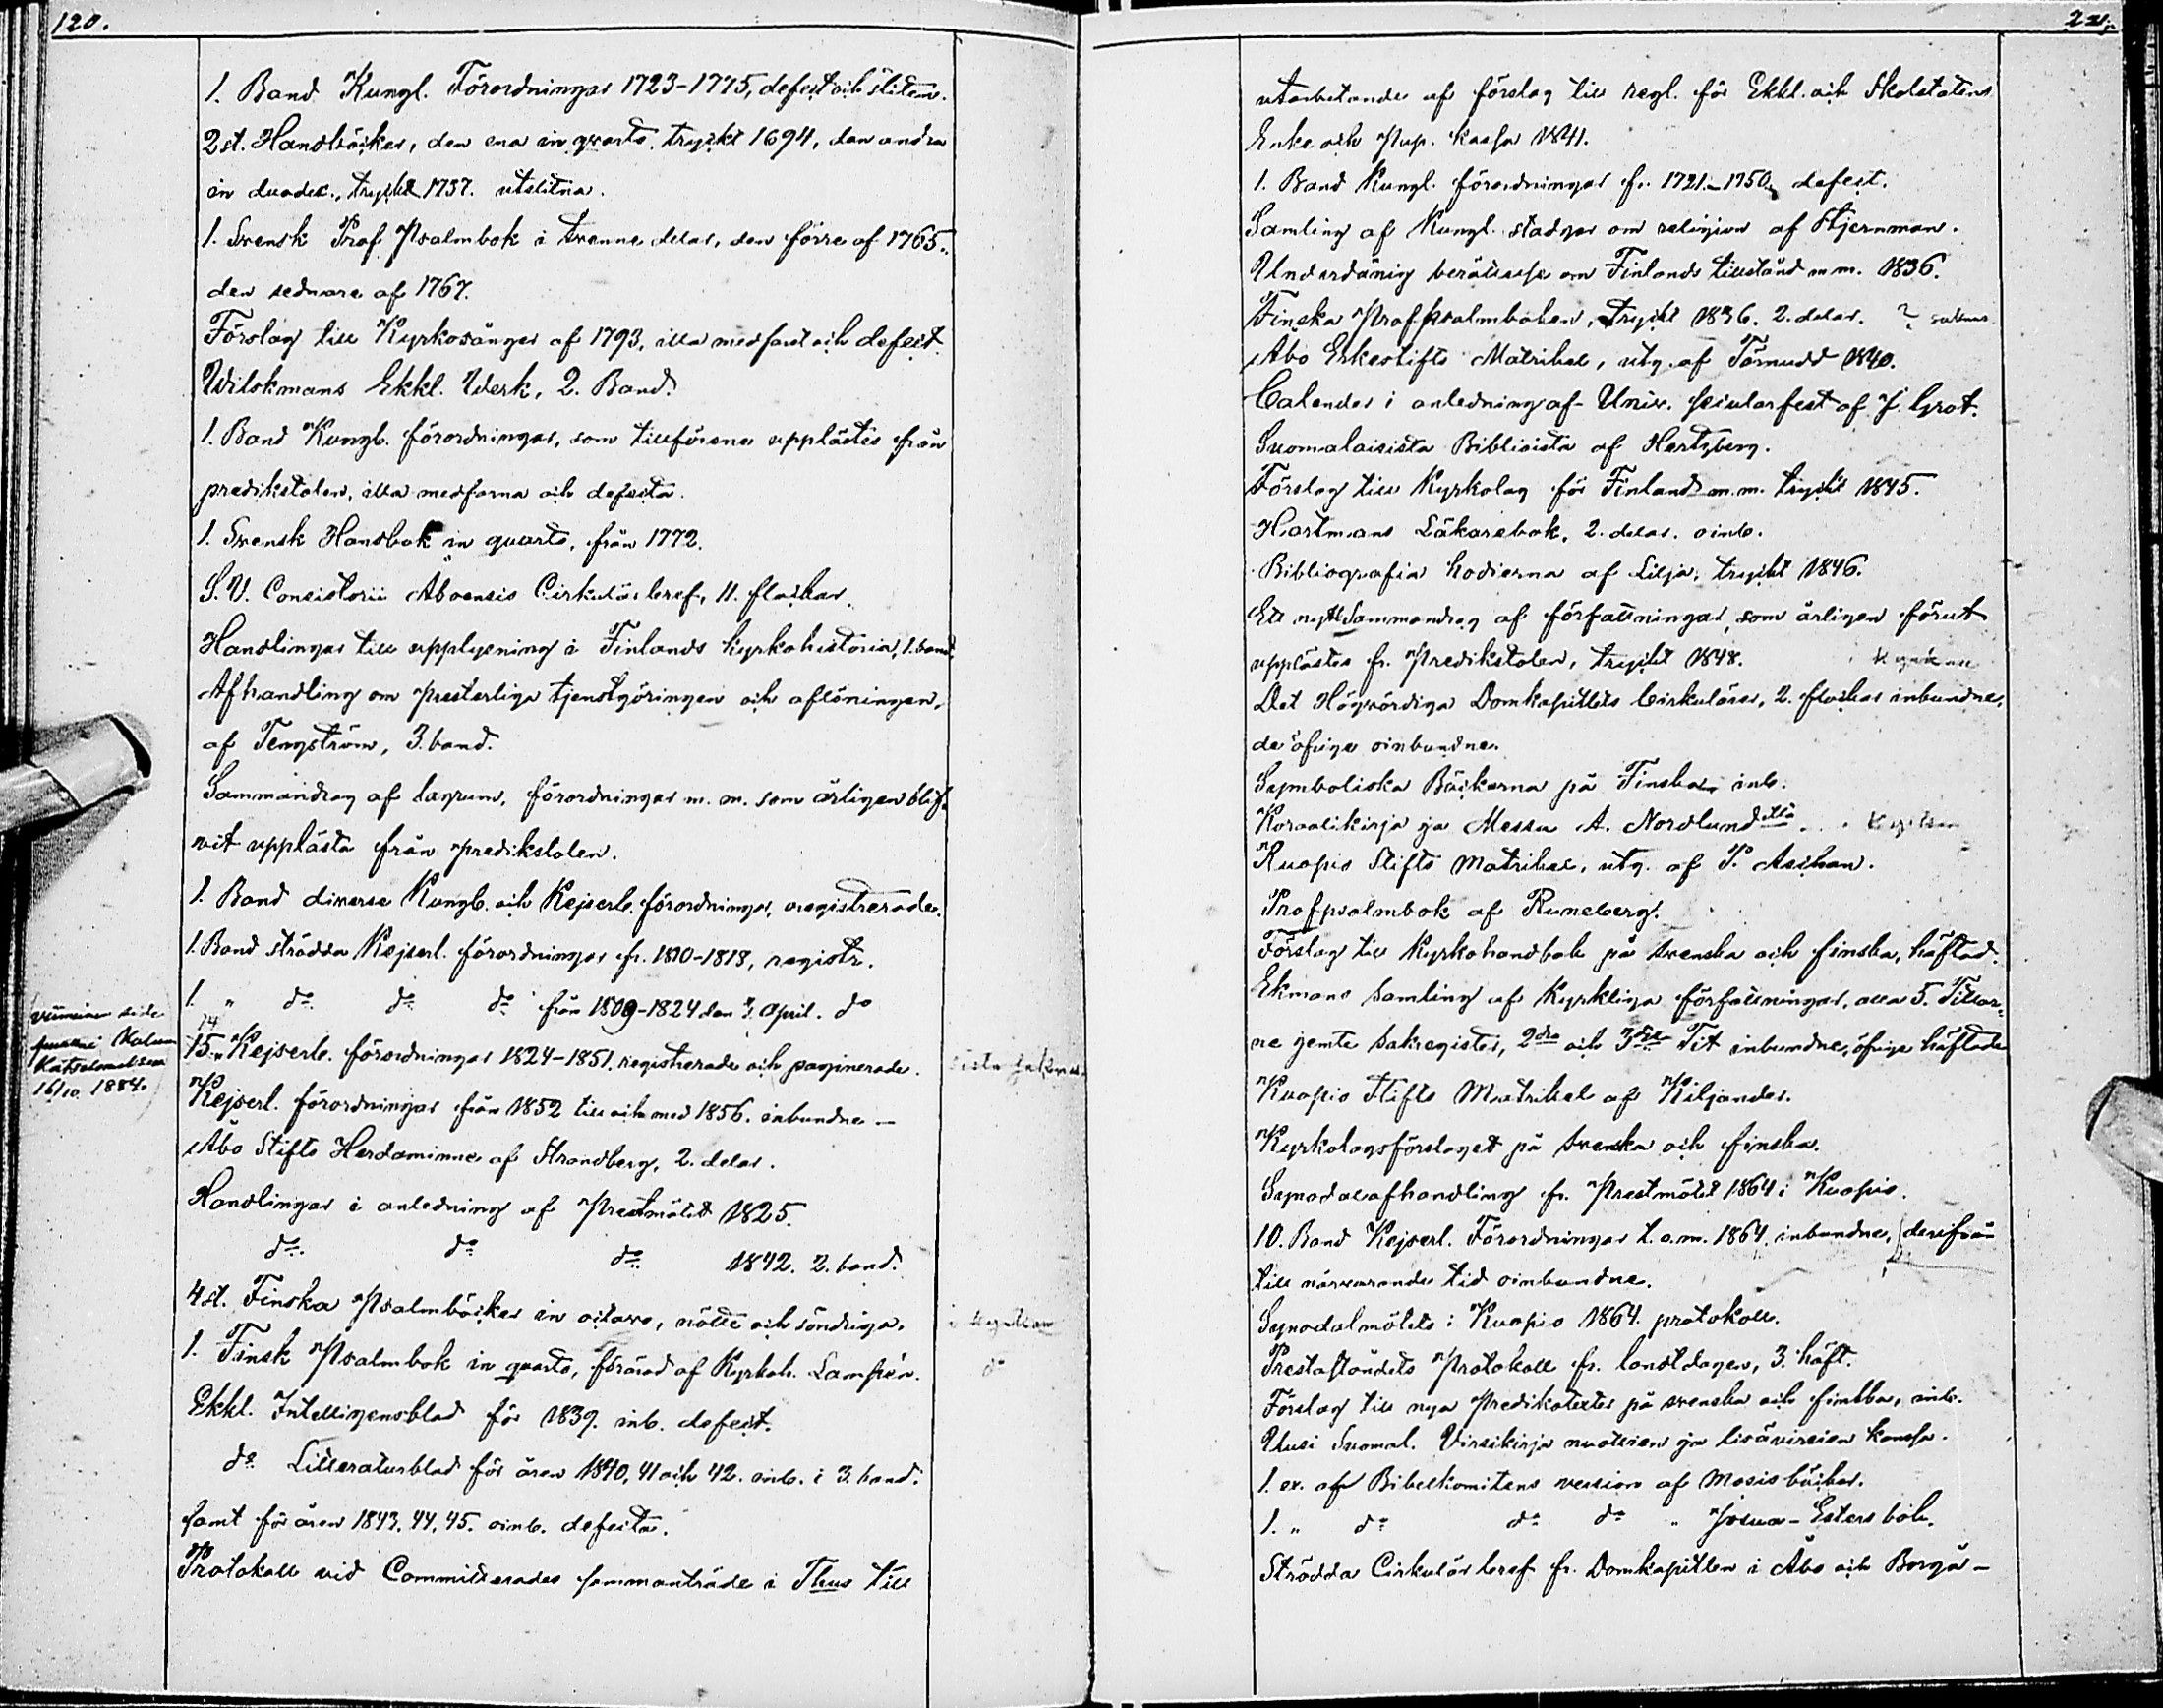 120.
1. Band Kungl. Förordningar 1723-1775, defect och sliten.
2 st. Handböcker, den ena in qvarto, tryckt 1694, den andra
in duodec., tryckt 1737. utslitna.
1. Svensk Prof Psalmbok i tvenne delar, den förre af 1765.
den sednare af 1767.
Förslag till Kyrkosånger af 1793, illa medfaret och defect.
Wilskmans Ekkl. Werk, 2. Band.
1. Band Kungl. förordningar, som tillförene upplästes från
predikstolen, illa medfarna och defecta.
1. Svensk Handbok in quarto, från 1772.
S. V. Consistorii Aboensis Cirkulär bref, 11. flockar.
Handlingar till upplysning i Finlands kyrkohistoria, 1. band.
Afhandling om presterliga tjenstgöringen och aflöningen,
af Tengström, 3. band.
Sammandrag af lagrum, förordningar m. m. som årligen blif-
vit upplästa från predikstolen.
1. Band diverse Kungl. och Kejserl. förordningar, oregistrerade.
1. Band strödda Kejserl. förordningar fr. 1810-1818, registr.
1. " do do do från 1809-1824 den 3. April. do
viimeinen side
Kalum
16/10 1884.
14
15. " Kejserl. förordningar 1824-1851. registrerade och paginerade.
Kejserl. förordningar från 1852 till och med 1856. inbundne -
Åbo Stifts Herdaminne af Strandberg, 2. delar.
Handlingar i anledning af Prestmötet 1825.
do do do 1842. 2. band.
4 st. Finska Psalmböcker in octavo, nötte och söndriga.
1. Finsk Psalmbok in quarto, förärad af Kyrkoh. Lampén.
do
Ekkl. Intelligensblad för 1839. inb. defect.
do Litteraturblad för åren 1840, 41 och 42. inb. i 3. band.
samt för åren 1843. 44. 45. oinb. defecta.
Protokoll vid Committerades sammanträde i Thus till
221.
utarbetande af förslag till regl. för Ekkl. och Skolstatens
Enke och Pup. kassa 1841.
1. Band Kungl. förordningar fr. 1721-1750. defect.
Samling af Kungl. stadgar om religion af Stjernman.
Underdånig berättelse om Finlands tillstånd m m. 1836.
Finska Profpsalmboken, tryckt 1836. 2. delar. ? saknas
Åbo Erkestifts Matrikel, utg. af Törnudd 1840.
Calender i anledning af Univ. secularfest af J. Grot.
Suomalaisista Biblioista af Hertzberg.
Förslag till Kyrkolag för Finland m. m. tryckt 1845.
Hartmans Läkarebok, 2. delar. oinb.
Bibliografia hodierna af Lilja, tryckt 1846.
Ett nytt Sammandrag af författningar, som årligen förut
upplästes fr. Predikstolen, tryckt 1848.
Det Högvördiga Domkapitlets Cirkulärer, 2. flockar inbundne,
de öfriga oinbundne.
Symboliska Böckerna på Finska. inb.
Koraalikirja ja Messu A. Nordlundilta.
Kuopio Stifts Matrikel, utg. af P. Aschan.
Profpsalmbok af Runeberg.
Förslag till Kyrkohandbok på svenska och finska, häftad.
Ekmans samling af kyrkliga författningar, alla 5. Titlar-
ne jemte sakregister, 2dra och 3dje Tit inbundne, öfriga häftade
Kuopio Stifts Matrikel af Kiljander.
Kyrkolagsförslaget på svenska och finska.
Synodalafhandling fr. Prestmötet 1864 i Kuopio.
10. Band Kejserl. Förordningar t. o. m. 1864. inbundne, derifrån
till närvarande tid oinbundne.
Synodalmötets i Kuopio 1864. protokoll.
Presteståndets Protokoll fr. landtdagen, 3. häft.
Förslag till nya Predikotexter på svenska och finska, inb.
Uusi Suomal. Virsikirja nuottien ja lisävirsien kanssa.
1. ex. af Bibelkomitens version af Mosis böcker.
1. " do do do " Josua - Esters bok.
Strödda Cirkulär bref fr. Domkapitlen i Åbo och Borgå -